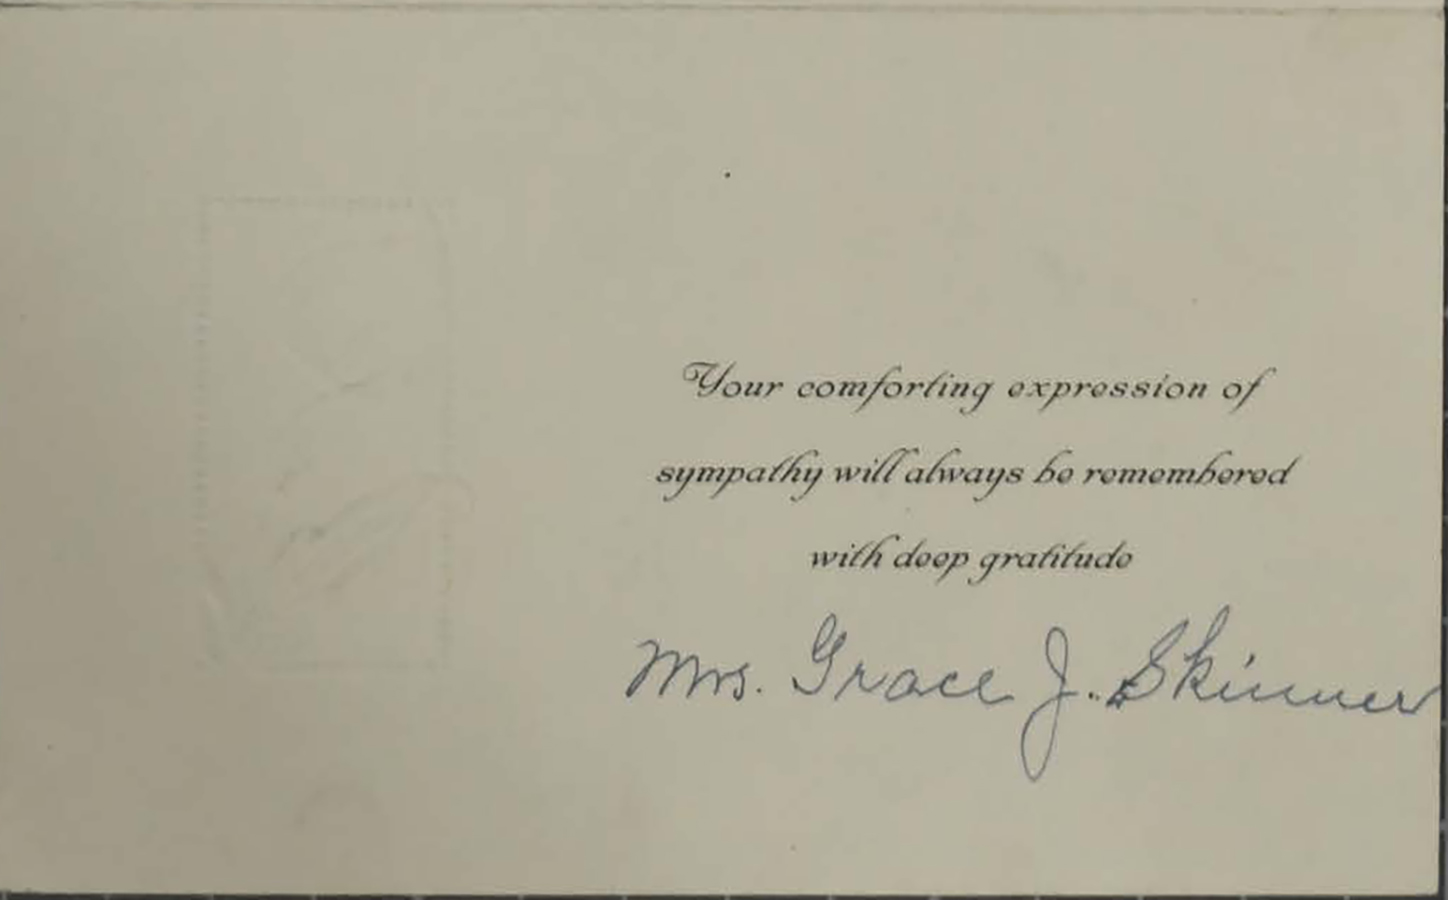 Your comforting expression of
sympathy will always be remembered
with deep gratitude
Mrs. Grace J. Skinner